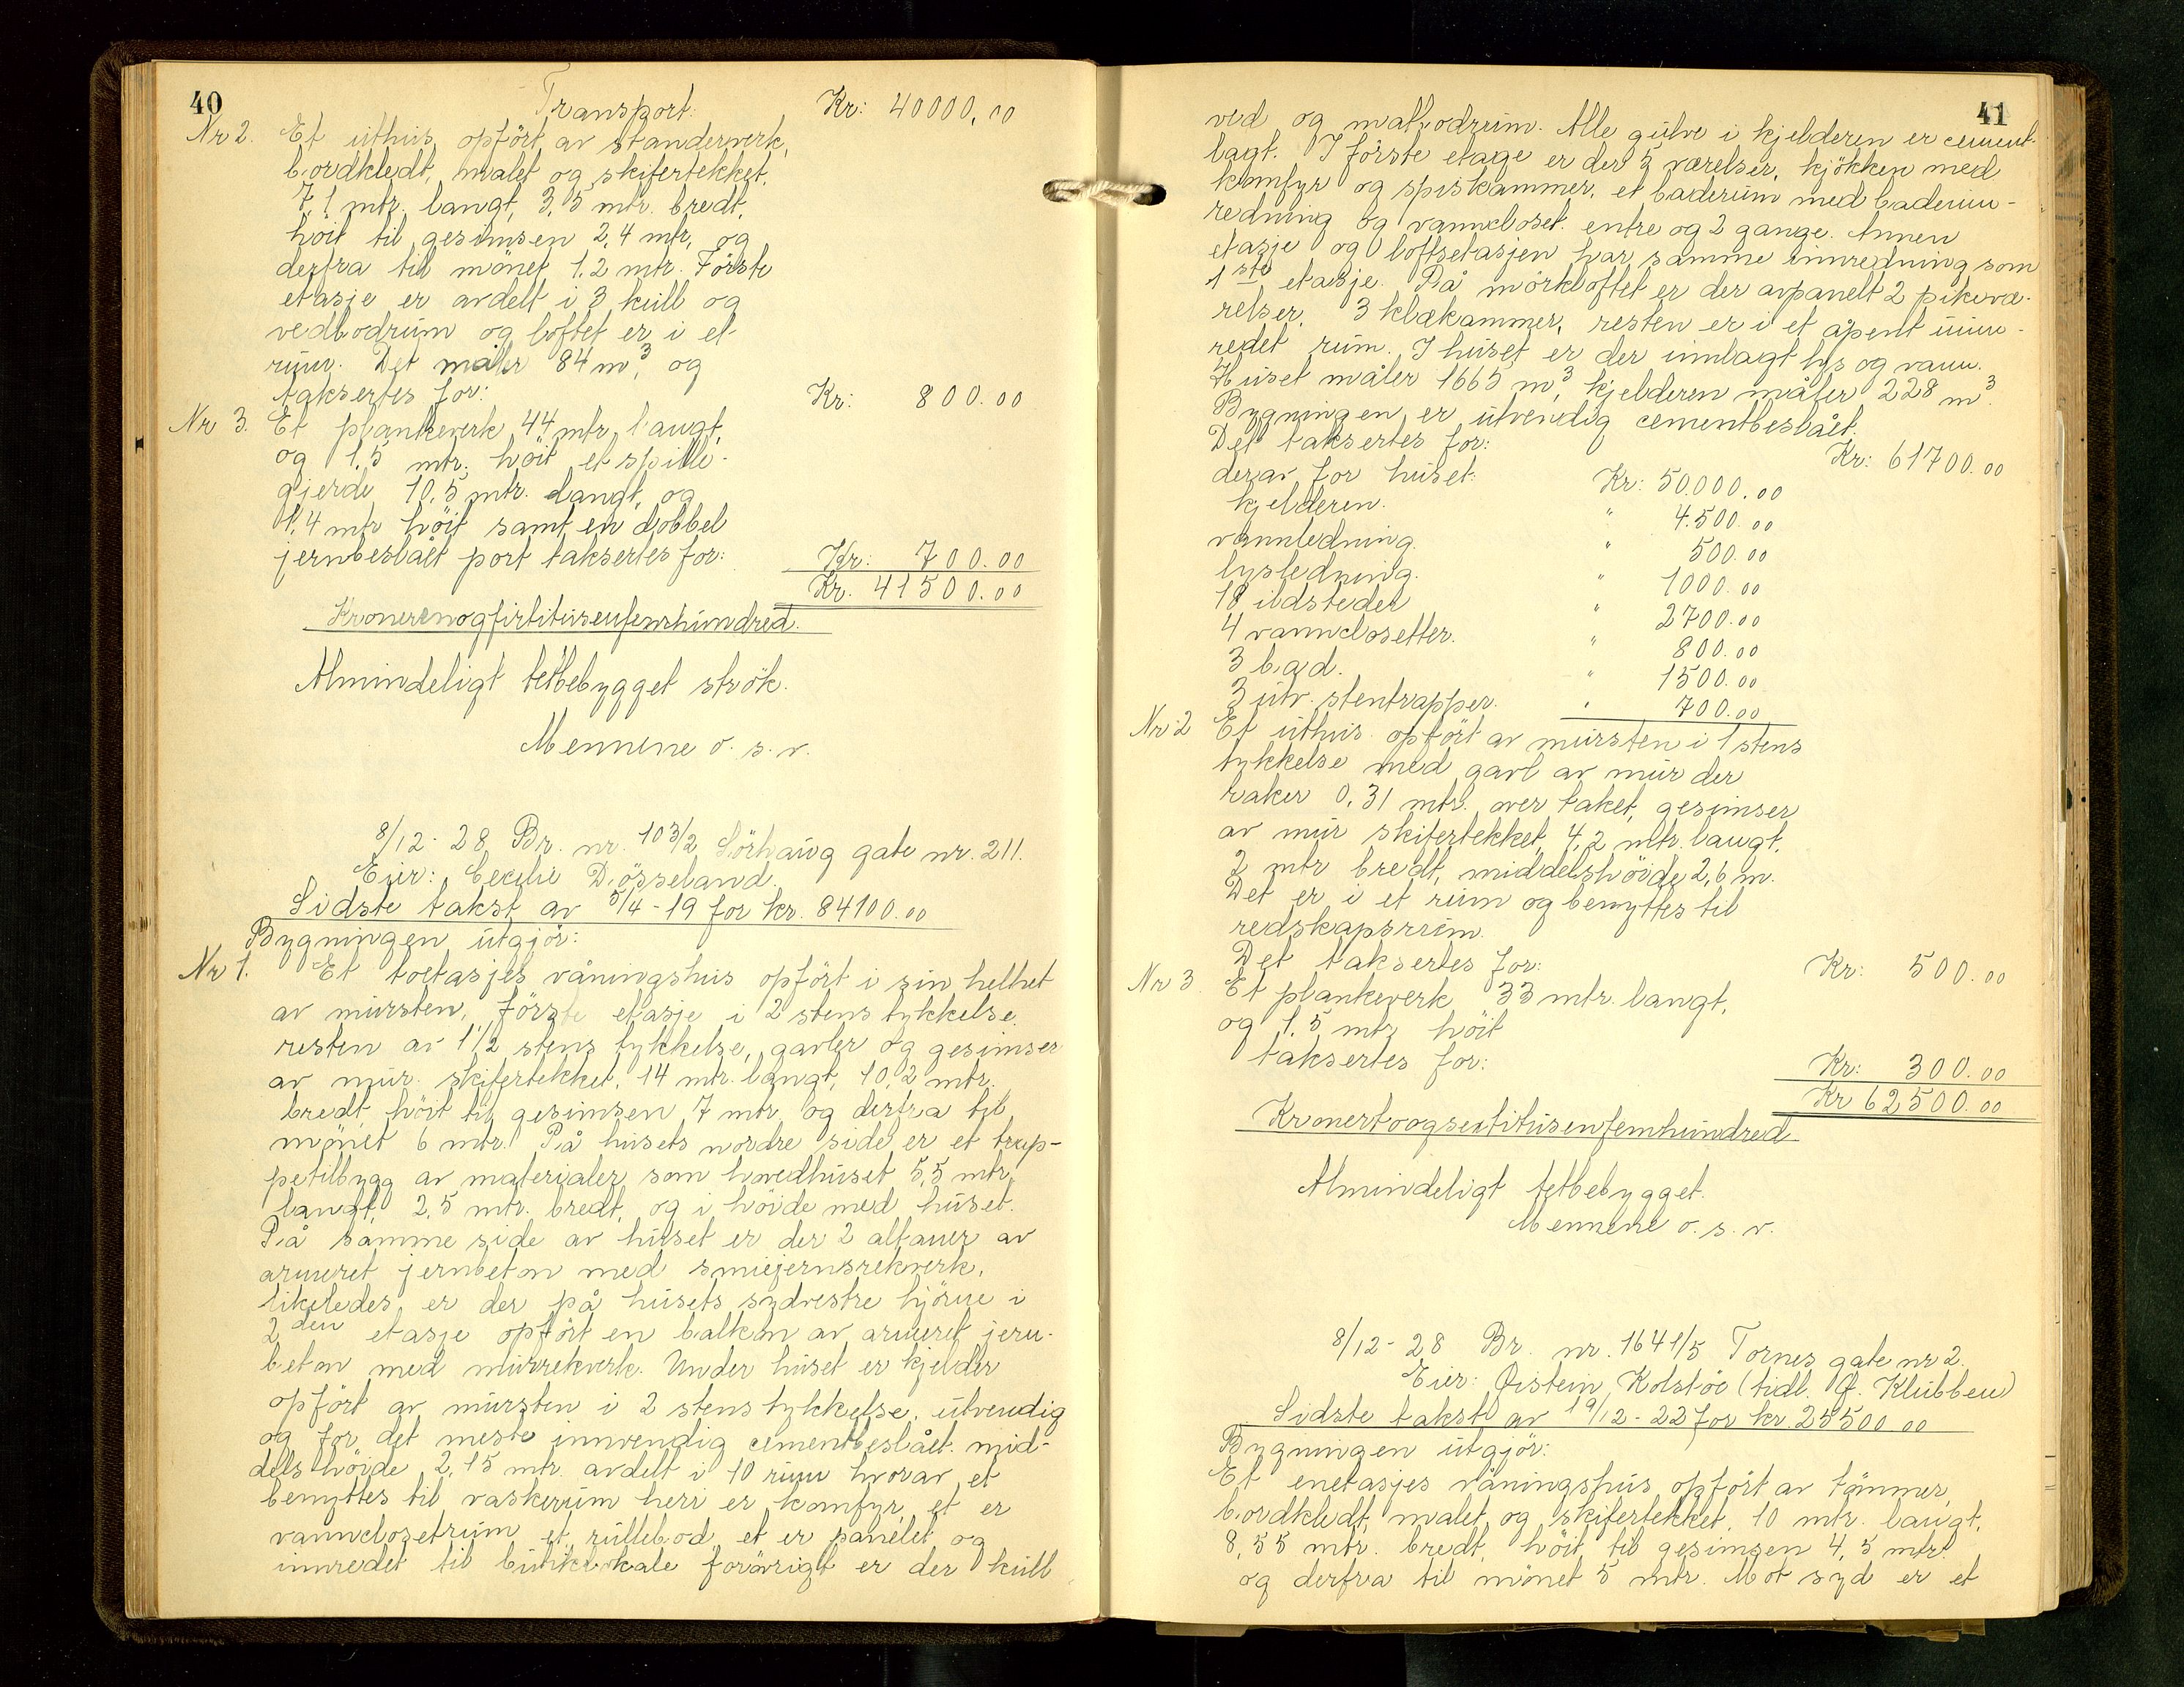 40
Transport. Kr: 40000,00
Nr 2. Et uthus opført av standerverk,
bordkledt, malet og skifertekket.
7,1 mtr. langt, 3,5 mtr. bredt,
høit til gesimsen 2,4 mtr, og
derfra til mønet 1,2 mtr. Første
etasje er avdelt i 3 kull og
vedbodrum og loftet er i et
rum. Det måler 84 m³, og
taksertes for: Kr: 800.00
Nr 3. Et plankeverk 44 mtr. langt,
og 1,5 mtr. høit et spille-
gjerde 10,5 mtr. langt, og
1,4 mtr høit samt en dobbel
jernbeslått port taksertes for: Kr: 700.00
Kr. 41500.00
Kronerenogfirtitusenfemhundred.
Almindeligt tetbebygget strøk.
Mennene o. s. v.
8/12-28 Br. nr. 103/2 Sørhaug gate nr. 211.
Eier: Cecilie Døsseland.
Sidste takst av 5/4-19 for kr. 84100.00
Bygningen utgjør:
Nr 1. Et toetasjes våningshus opført i sin helhet
av mursten, første etasje i 2 stens tykkelse,
resten av 1 1/2 stens tykkelse, gavler og gesimser
av mur. skifertekket, 14 mtr. langt, 10,2 mtr.
bredt, høit til gesimsen 7 mtr. og derfra til
mønet 6 mtr. På husets nordre side er et trap-
petilbygg av materialer som hovedhuset 5,5 mtr.
langt, 2,5 mtr. bredt, og i høide med huset.
På samme side av huset er der 2 altaner av
armeret jernbeton med smiejernsrekverk,
likeledes er der på husets sydvestre hjørne i
2den etasje opført en balkon av armeret jern-
beton med murrekverk. Under huset er kjelder
opført av mursten i 2 stens tykkelse, utvendig
og for det meste innvendig cementbeslått. mid-
dels høide 2,15 mtr. avdelt i 10 rum hvorav et
benyttes til vaskerum heri er komfyr, et er
vannclosetrum et rullebod, et er panelet og
innredet til butiklokale forøvrigt er der kull
41
ved og matbodrum. Alle gulve i kjelderen er cement-
lagt. I første etage er der 5 værelser, kjøkken med
komfyr og spiskammer, et baderum med baderum-
redning og vanncloset. entre og 2 gange. Annen
etasje og loftsetasjen har samme innredning som
1ste etasje. På mørkloftet er der avpanelt 2 pikevæ-
relser, 3 klækammer, resten er i et åpent uinn-
redet rum. I huset er der innlagt lys og vann.
Huset måler 1665 m³, kjelderen måler 228 m³.
Bygningen er utvendig cementbeslått.
Det taksertes for: Kr: 61700.00
derav for huset: Kr: 50.000.00
kjelderen. " 4.500.00
vannledning. " 500.00
lysledning. " 1000.00
18 ildsteder " 2700.00
4 vannclosetter. " 800.00
3 bad. " 1500.00
3 utv. stentrapper. " 700.00
Nr 2 Et uthus opført av mursten i 1 stens
tykkelse med gavl av mur der
raker 0,31 mtr. over taket, gesimser
av mur skifertekket, 4,2 mtr. langt,
2 mtr bredt, middelshøide 2,6 m.
Det er i et rum og benyttes til
redskapsrum.
Det taksertes for: Kr: 500.00
Nr 3. Et plankeverk 33 mtr. langt,
og 1,5 mtr høit
taksertes for: Kr: 300.00
Kr 62500.00
Kronertoogsekstitusenfemhundred
Almindeligt tetbebygget.
Mennene o. s. v.
8/12-28 Br. nr. 1641/5 Tornes gate nr 2.
Eier: Øistein Kolstøe (tidl. Klubben)
Sidste takst av 19/12-22 for kr. 25500 00
Bygningen utgjør:
Et enetasjes våningshus opført av tømmer,
bordkledt, malet og skifertekket, 10 mtr. langt,
8,55 mtr. bredt, høit til gesimsen 4,5 mtr.
og derfra til mønet 5 mtr. Mot syd er et